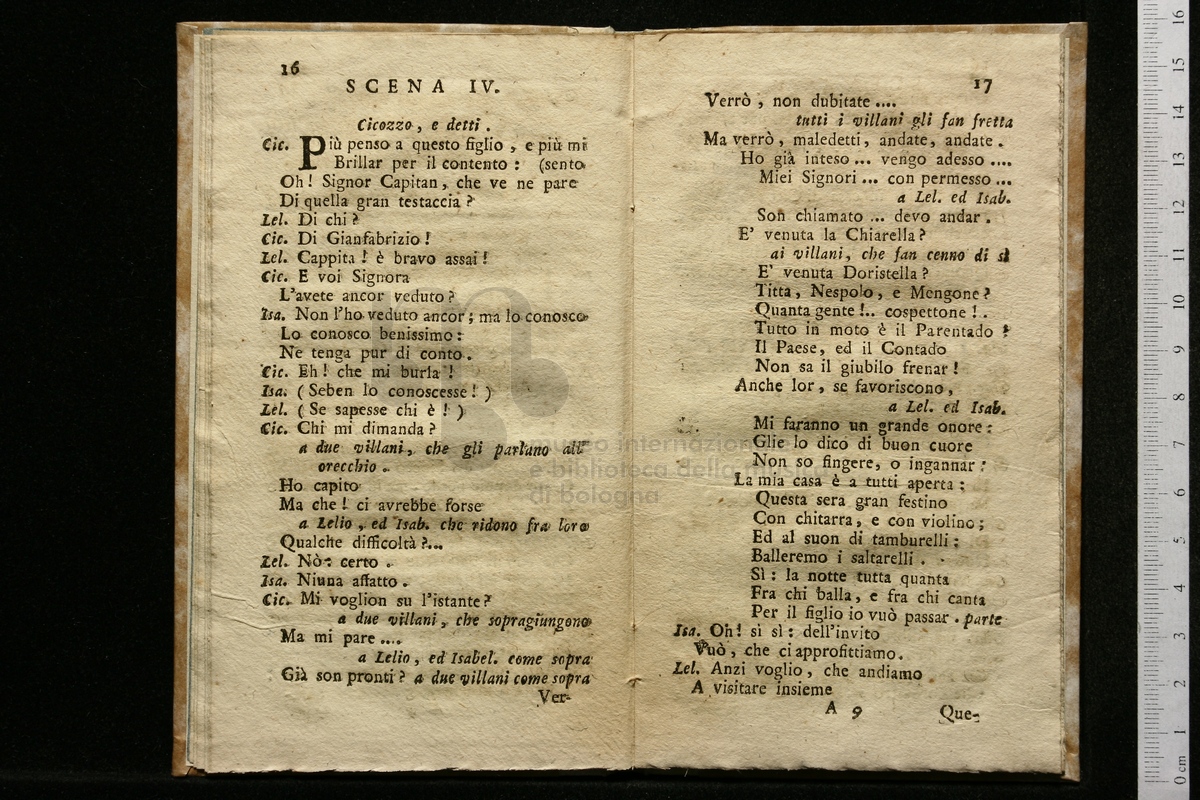 16
SCENA IV.
Cicozzo, e detti.
Cic. Più penso a questo figlio, e più mi
Brillar per il contento: (sento
Oh! Signor Capitan, che ve ne pare
Di quella gran testaccia?
Lel. Di chi?
Cic. Di Gianfabrizio!
Lel. Cappita! è bravo assai!
Cic. E voi Signora
L'avete ancor veduto?
Isa. Non l'ho veduto ancor; ma lo conosco
Lo conosco benissimo:
Ne tenga pur di conto.
Cic. Eh! che mi burla!
Isa. (Seben lo conoscesse!)
Lel. (Se sapesse chi è!)
Cic. Chi mi dimanda?
a due villani, che gli parlano all'
orecchio.
Ho capito
Ma che! ci avrebbe forse
a Lelio, ed Isab. che ridono fra loro
Qualche difficoltà?...
Lel. Nò: certo.
Isa. Niuna affatto.
Cic. Mi voglion su l'istante?
a due villani, che sopragiungono
Ma mi pare....
a Lelio, ed Isabel. come sopra
Già son pronti? a due villani come sopra
Ver-
17
Verrò, non dubitate....
tutti i villani gli fan fretta
Ma verrò, maledetti, andate, andate.
Ho già inteso... vengo adesso....
Miei Signori... con permesso...
a Lel. ed Isab.
Son chiamato... devo andar.
E' venuta la Chiarella?
ai villani, che fan cenno di sì
E' venuta Doristella?
Titta, Nespolo, e Mengone?
Quanta gente!.. cospettone!.
Tutto in moto è il Parentado?
Il Paese, ed il Contado
Non sa il giubilo frenar!
Anche lor, se favoriscono,
a Lel. ed Isab.
Mi faranno un grande onore:
Glie lo dico di buon cuore
Non so fingere, o ingannar:
La mia casa è a tutti aperta:
Questa sera gran festino
Con chitarra, e con violino;
Ed al suon di tamburelli:
Balleremo i saltarelli.
Sì: la notte tutta quanta
Fra chi balla, e fra chi canta
Per il figlio io vuò passar. parte
Isa. Oh! sì sì: dell'invito
Vuò, che ci approfittiamo.
Lel. Anzi voglio, che andiamo
A visitare insieme
A 9
Que-
museo internazionale
e biblioteca della musica
di Bologna
0 cm 1 2 3 4 5 6 7 8 9 10 11 12 13 14 15 16